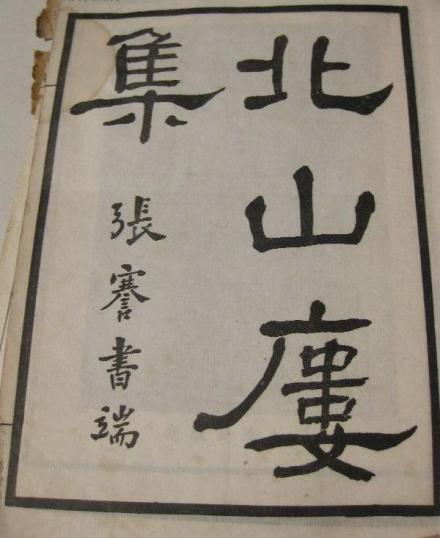 北山廔
集
張謇書端